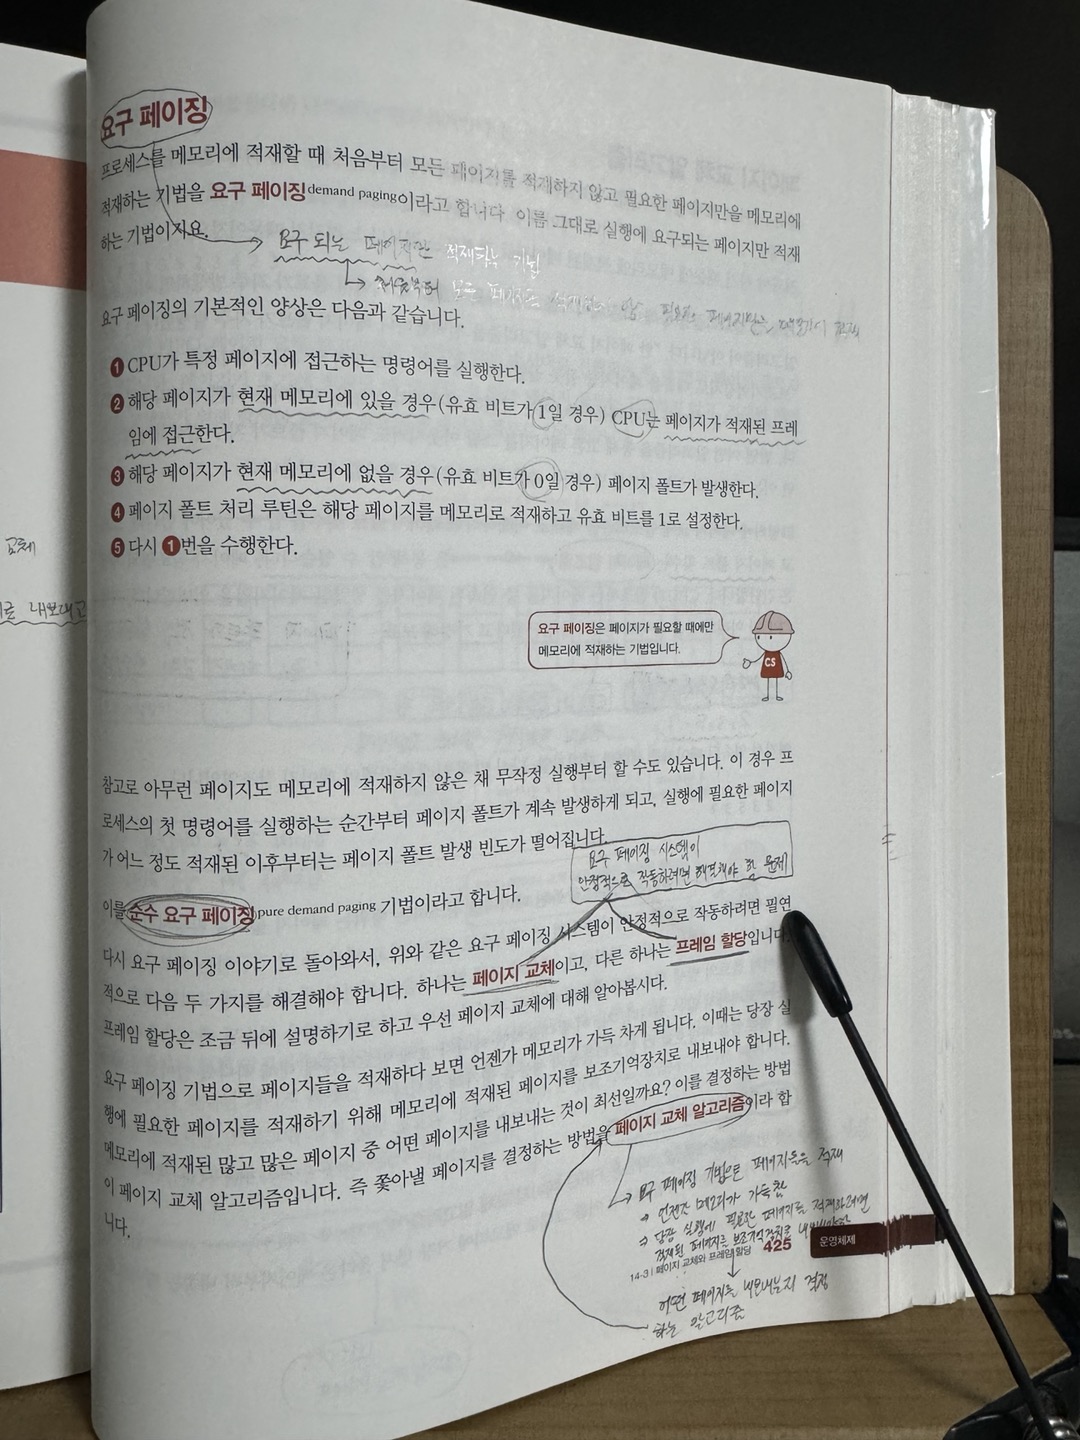 요구 페이징
프로세스를 메모리에 적재할 때 처음부터 모든 페이지를 적재하지 않고 필요한 페이지만을 메모리에
적재하는 기법을 요구 페이징demand paging이라고 합니다. 이름 그대로 실행에 요구되는 페이지만 적재
하는 기법이지요.
요구 되는 페이지만 적재하는 기법
처음부터 모든 페이지를 적재하지 않 필요한 페이지만을 메모리에 적재
요구 페이징의 기본적인 양상은 다음과 같습니다.
1 CPU가 특정 페이지에 접근하는 명령어를 실행한다.
2 해당 페이지가 현재 메모리에 있을 경우(유효 비트가 1일 경우) CPU는 페이지가 적재된 프레
임에 접근한다.
3 해당 페이지가 현재 메모리에 없을 경우(유효 비트가 0일 경우) 페이지 폴트가 발생한다.
4 페이지 폴트 처리 루틴은 해당 페이지를 메모리로 적재하고 유효 비트를 1로 설정한다.
5 다시 1번을 수행한다.
교체
로 내보내고
요구 페이징은 페이지가 필요할 때에만
메모리에 적재하는 기법입니다.
CS
참고로 아무런 페이지도 메모리에 적재하지 않은 채 무작정 실행부터 할 수도 있습니다. 이 경우 프
로세스의 첫 명령어를 실행하는 순간부터 페이지 폴트가 계속 발생하게 되고, 실행에 필요한 페이지
가 어느 정도 적재된 이후부터는 페이지 폴트 발생 빈도가 떨어집니다.
요구 페이징 시스템이
안정적으로 작동하려면 해결해야 할 문제
이를 순수 요구 페이징pure demand paging 기법이라고 합니다.
다시 요구 페이징 이야기로 돌아와서, 위와 같은 요구 페이징 시스템이 안정적으로 작동하려면 필연
적으로 다음 두 가지를 해결해야 합니다. 하나는 페이지 교체이고, 다른 하나는 프레임 할당입니다.
프레임 할당은 조금 뒤에 설명하기로 하고 우선 페이지 교체에 대해 알아봅시다.
요구 페이징 기법으로 페이지들을 적재하다 보면 언젠가 메모리가 가득 차게 됩니다. 이때는 당장 실
행에 필요한 페이지를 적재하기 위해 메모리에 적재된 페이지를 보조기억장치로 내보내야 합니다.
메모리에 적재된 많고 많은 페이지 중 어떤 페이지를 내보내는 것이 최선일까요? 이를 결정하는 방법
이 페이지 교체 알고리즘입니다. 즉 쫓아낼 페이지를 결정하는 방법을 페이지 교체 알고리즘이라 합
니다.
요구 페이징 기법으로 페이지들을 적재
언젠가 메모리가 가득참
당장 실행에 필요한 페이지를 적재하려면
적재된 페이지를 보조기억장치로 내보내야함
14-3 | 페이지 교체와 프레임 할당 425 운영체제
어떤 페이지를 내보내는지 결정
하는 알고리즘